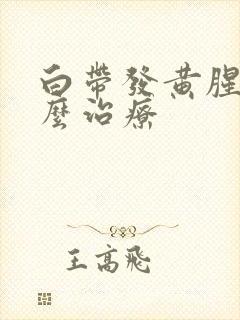 白帶發黃腥
麼治療
王高飛